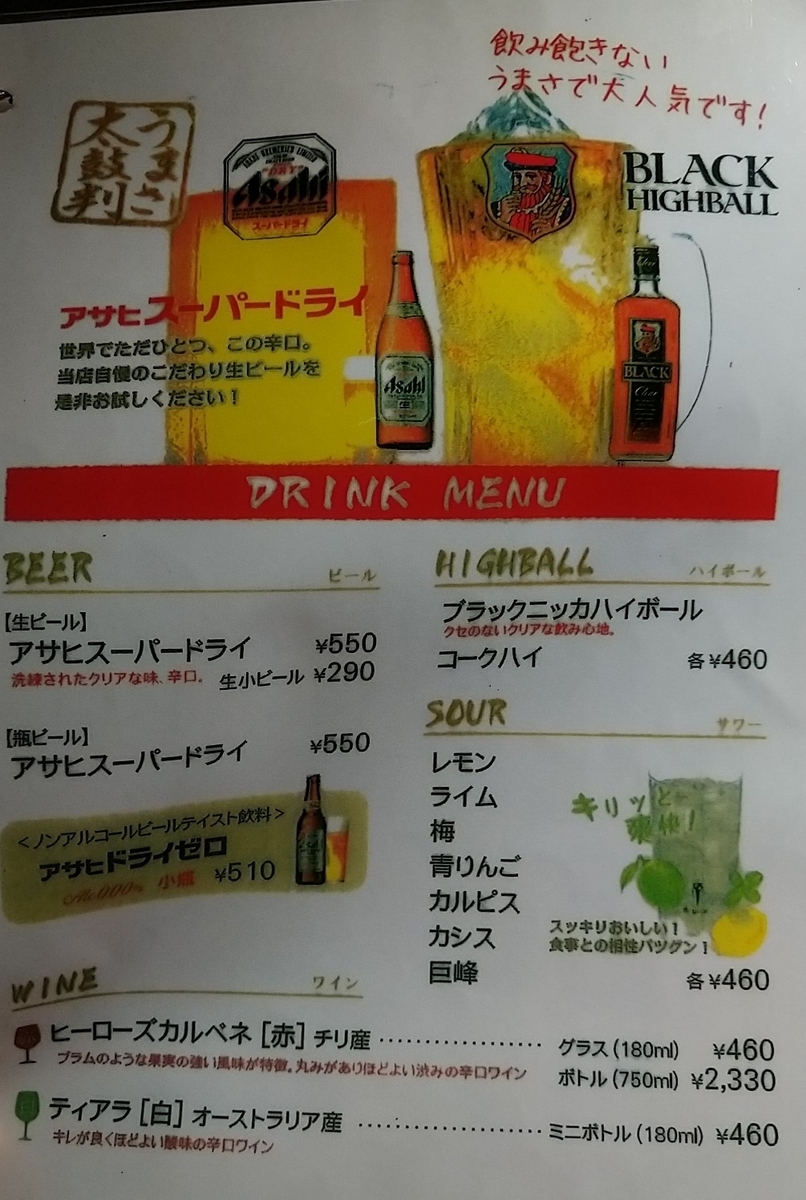 飲み飽きない
うまさで大人気です！
うまさ
太鼓判
ASAHI BREWERIES LIMITED
"DRY"
Asahi
スーパードライ
BLACK
HIGHBALL
アサヒスーパードライ
世界でただひとつ、この辛口。
当店自慢のこだわり生ビールを
是非お試しください！
Asahi
BLACK
Clear
DRINK MENU
BEER ビール
【生ビール】
アサヒスーパードライ ¥550
洗練されたクリアな味、辛口。 生小ビール ¥290
【瓶ビール】
アサヒスーパードライ ¥550
＜ノンアルコールビールテイスト飲料＞
アサヒドライゼロ
Alc.0.00% 小瓶 ¥510
HIGHBALL ハイボール
ブラックニッカハイボール
クセのないクリアな飲み心地。
コークハイ 各¥460
SOUR サワー
レモン
ライム
梅
青りんご
カルピス
カシス
巨峰
キリッと
爽快！
スッキリおいしい！
食事との相性バツグン！
各¥460
WINE ワイン
ヒーローズカルベネ［赤］チリ産 ‥‥‥‥‥‥‥ グラス（180ml） ¥460
プラムのような果実の強い風味が特徴。丸みがありほどよい渋みの辛口ワイン ボトル（750ml） ¥2,330
ティアラ［白］オーストラリア産 ‥‥‥‥‥‥‥ ミニボトル（180ml） ¥460
キレが良くほどよい酸味の辛口ワイン